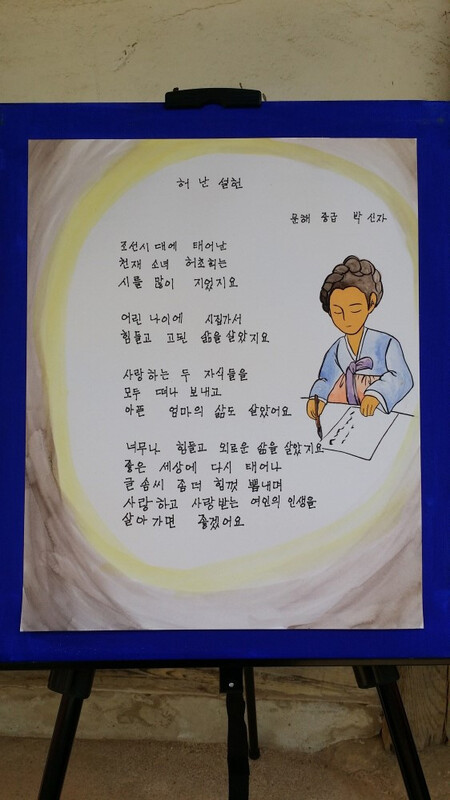 허 난 설헌
문해 중급 박 신자
조선시대에 태어난
천재 소녀 허초희는
시를 많이 지었지요
어린 나이에 시집가서
힘들고 고된 삶을 살았지요
사랑하는 두 자식들을
모두 떠나 보내고
아픈 엄마의 삶도 살았어요
너무나 힘들고 외로운 삶을 살았지요
좋은 세상에 다시 태어나
글 솜씨 좀 더 힘껏 뽐내며
사랑하고 사랑받는 여인의 인생을
살아가면 좋겠어요